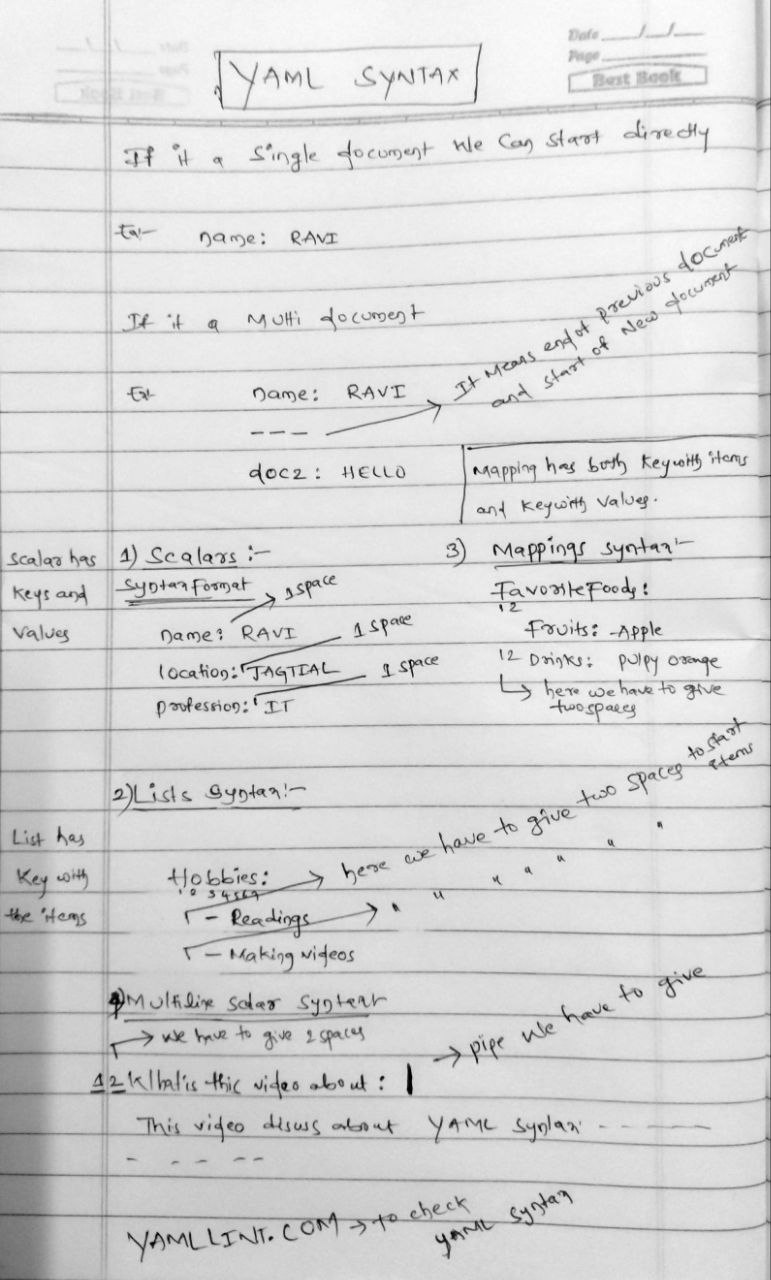 Date __/__/__
Page
Best Book
YAML SYNTAX
If it a single document we can start directly
Ex:- name: RAVI
If it a Multi document
Ex:- name: RAVI
---
It Means end of previous document
and start of New document
doc2: HELLO
Mapping has both key with items
and key with values.
Scalar has
keys and
values
1) Scalars :-
Syntax Format
1 space
name: RAVI
1 space
location: JAGTIAL
1 space
profession: IT
3) Mappings syntax:-
Favorite Foods:
12
Fruits: Apple
12 Drinks: pulpy orange
here we have to give
two spaces
2) Lists Syntax:-
List has
key with
the items
Hobbies:
here we have to give two spaces to start
items
1 2 3 4 5 6 7
- Readings
" " " " " " "
- Making videos
4) Multiline scalar syntext
we have to give 2 spaces
pipe we have to give
12 What is thic video about: |
This video disuss about YAML Syntax - - - - - -
- - - - -
YAMLLINT.COM → to check
YAML syntax